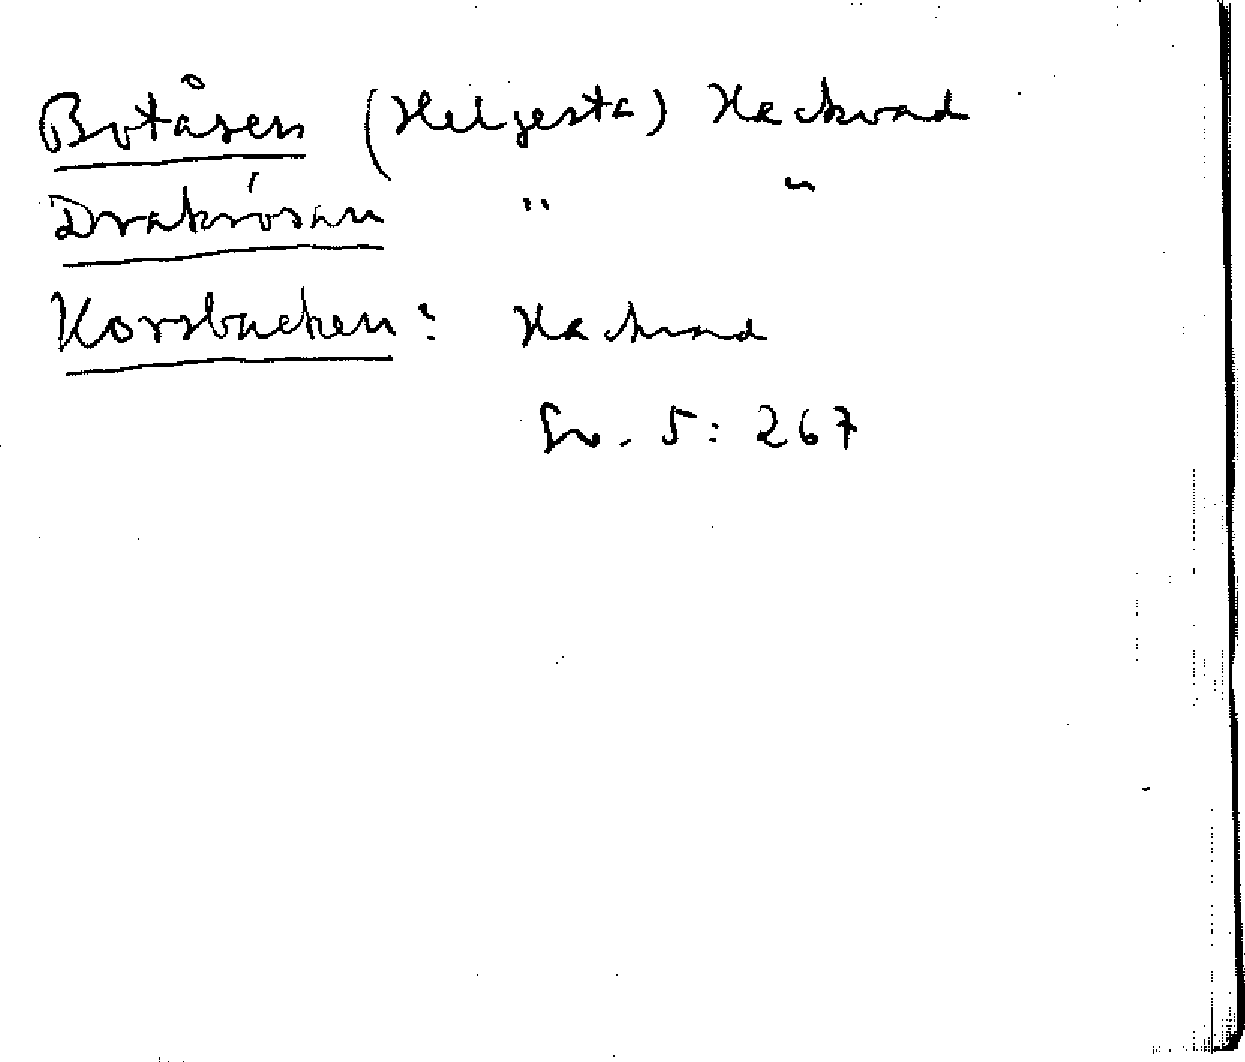 Botåsen (Helgesta) Hackvad
Drakrösan " "
Korsbacken: Hackvad
5: 267